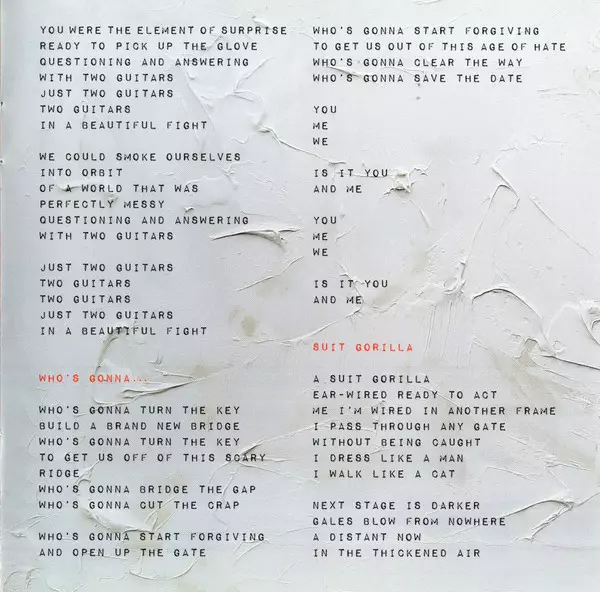 YOU WERE THE ELEMENT OF SURPRISE
READY TO PICK UP THE GLOVE
QUESTIONING AND ANSWERING
WITH TWO GUITARS
JUST TWO GUITARS
TWO GUITARS
IN A BEAUTIFUL FIGHT
WE COULD SMOKE OURSELVES
INTO ORBIT
OF A WORLD THAT WAS
PERFECTLY MESSY
QUESTIONING AND ANSWERING
WITH TWO GUITARS
JUST TWO GUITARS
TWO GUITARS
TWO GUITARS
JUST TWO GUITARS
IN A BEAUTIFUL FIGHT
WHO'S GONNA...
WHO'S GONNA TURN THE KEY
BUILD A BRAND NEW BRIDGE
WHO'S GONNA TURN THE KEY
TO GET US OFF OF THIS SCARY
RIDGE
WHO'S GONNA BRIDGE THE GAP
WHO'S GONNA CUT THE CRAP
WHO'S GONNA START FORGIVING
AND OPEN UP THE GATE
WHO'S GONNA START FORGIVING
TO GET US OUT OF THIS AGE OF HATE
WHO'S GONNA CLEAR THE WAY
WHO'S GONNA SAVE THE DATE
YOU
ME
WE
IS IT YOU
AND ME
YOU
ME
WE
IS IT YOU
AND ME
SUIT GORILLA
A SUIT GORILLA
EAR-WIRED READY TO ACT
ME I'M WIRED IN ANOTHER FRAME
I PASS THROUGH ANY GATE
WITHOUT BEING CAUGHT
I DRESS LIKE A MAN
I WALK LIKE A CAT
NEXT STAGE IS DARKER
GALES BLOW FROM NOWHERE
A DISTANT NOW
IN THE THICKENED AIR